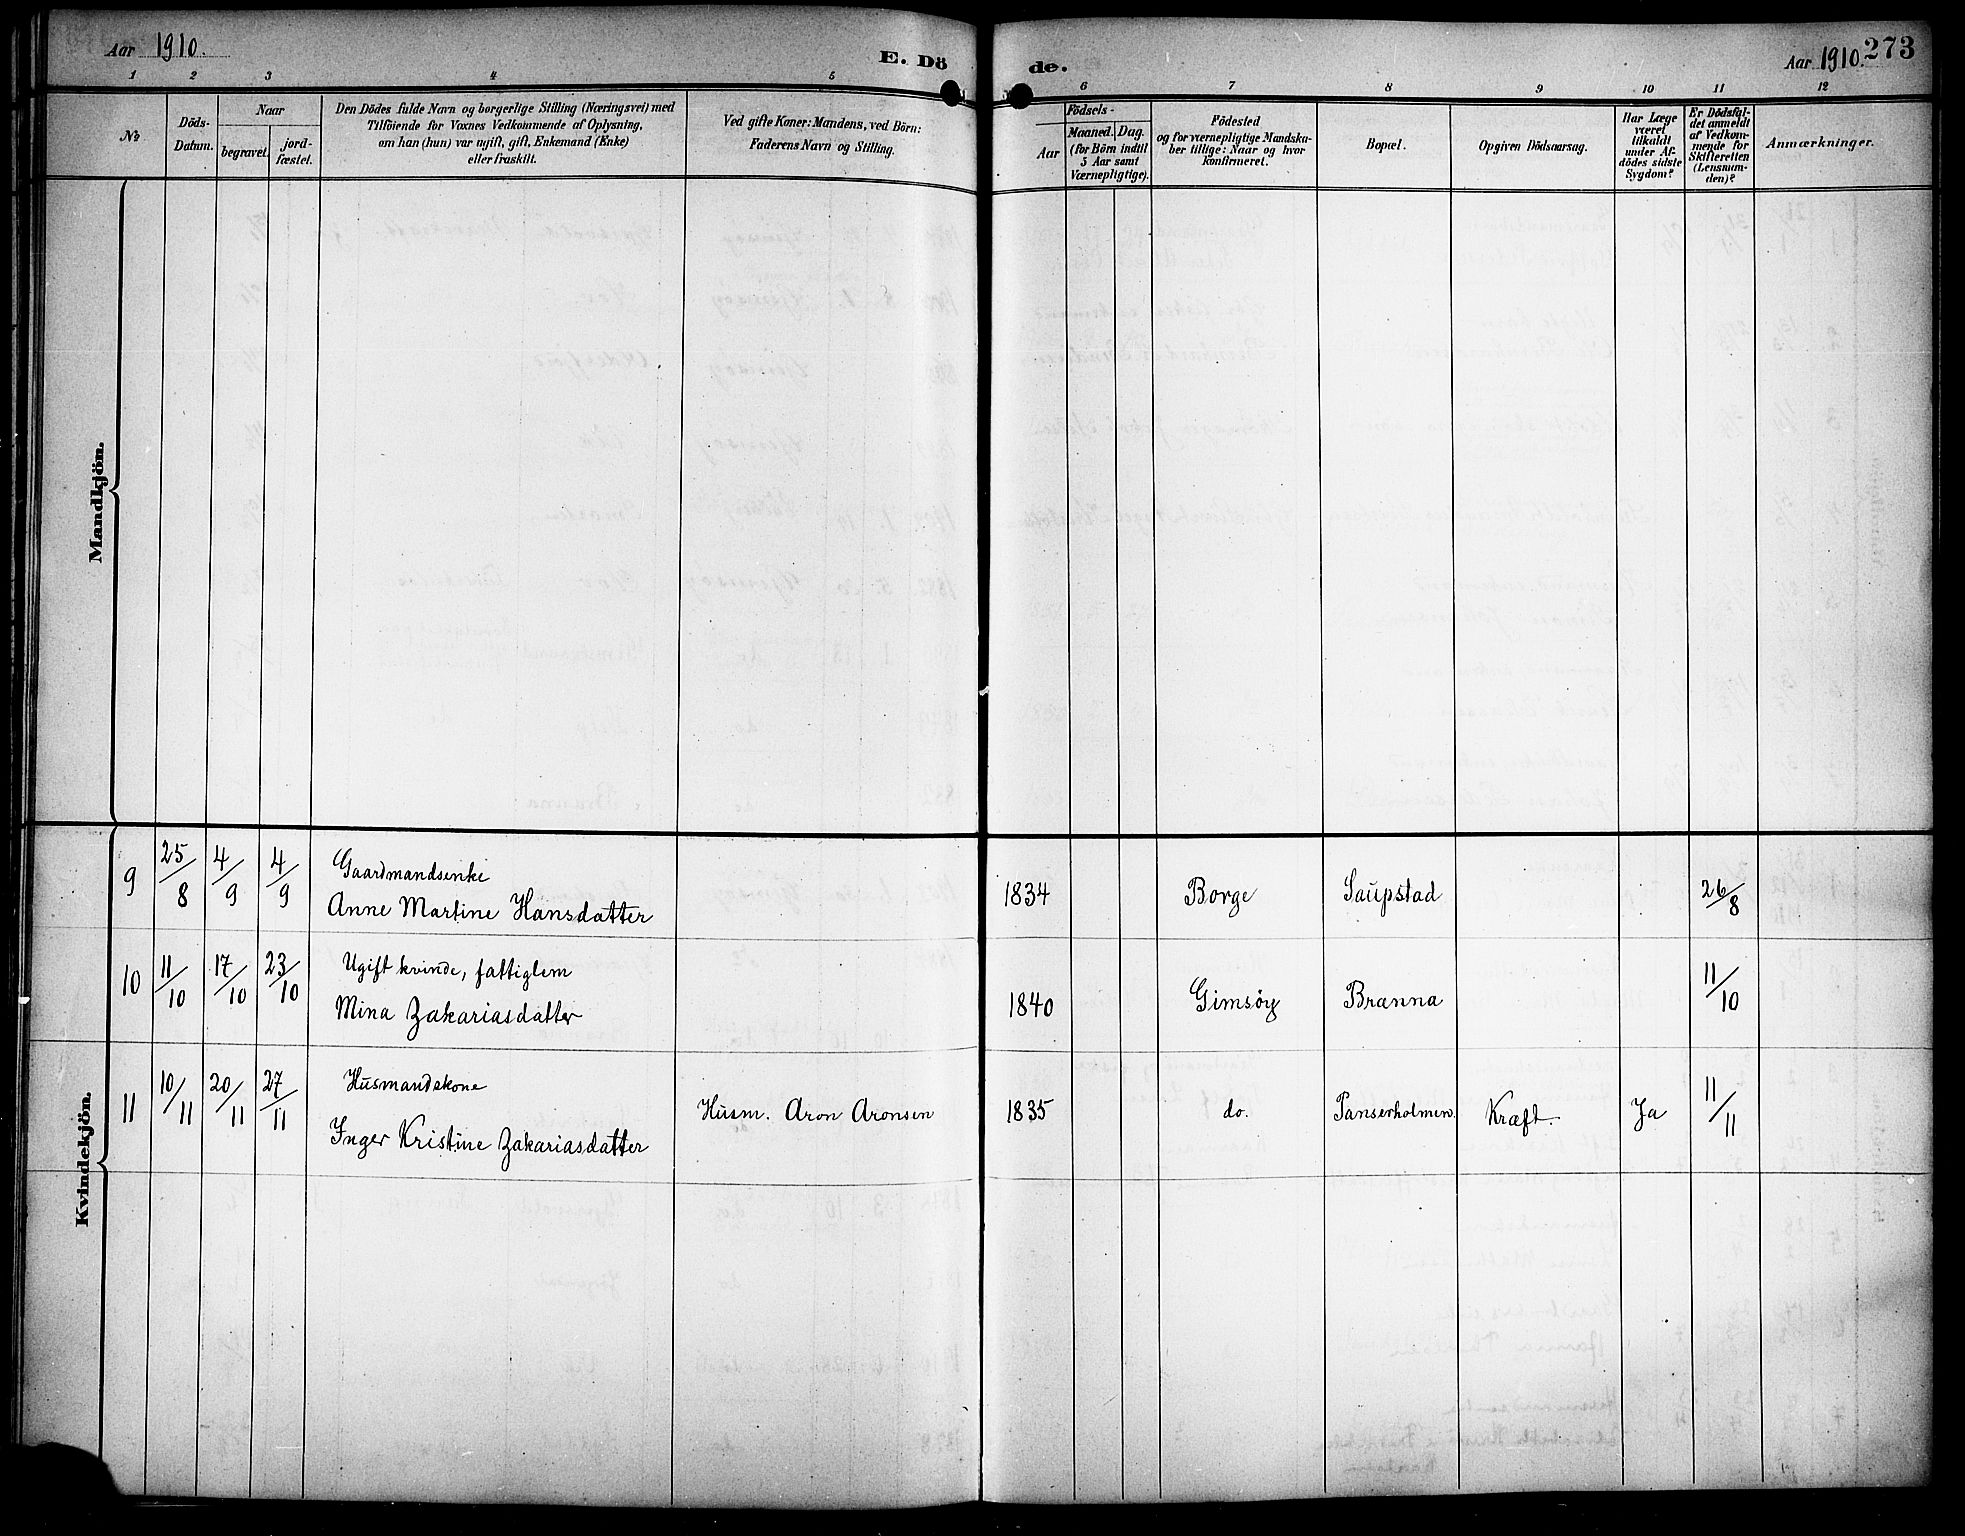 Aar 1910.
E. Dö
de.
Aar 1910. 273
1 2 3 4 5 6 7 8 9 10 11 12
No
Döds-
Datum.
Naar
begravet.
jord-
fæstet.
Den Dödes fulde Navn og borgerlige Stilling (Næringsvei) med
Tilföiende for Voxnes Vedkommende af Oplysning,
om han (hun) var ugift, gift, Enkemand (Enke)
eller fraskilt.
Ved gifte Koner: Mandens, ved Börn:
Faderens Navn og Stilling.
Födsels-
Aar
Maaned. Dag.
(for Börn indtil
5 Aar samt
Værnepligtige).
Födested
og for værnepligtige Mandska-
ber tillige: Naar og hvor
konfirmeret.
Bopæl.
Opgiven Dödsaarsag.
Har Læge
været
tilkaldt
under Af-
dödes sidste
Sygdom?
Er Dödsfal-
det anmeldt
af Vedkom-
mende for
Skifteretten
(Lensman-
den)?
Anmærkninger.
Mandkjön.
Kvindekjön.
9 25/8 4/9 4/9 Gaardmandsenke
Anne Martine Hansdatter 1834 Borge Saupstad 26/8
10 11/10 17/10 23/10 Ugift kvinde, fattiglem
Mina Zakariasdatter 1840 Gimsöy Brænna 11/10
11 10/11 20/11 27/11 Husmandskone
Inger Kristine Zakariasdatter Husm. Aron Aronsen 1835 do. Panserholmen. Kræft. Ja 11/11